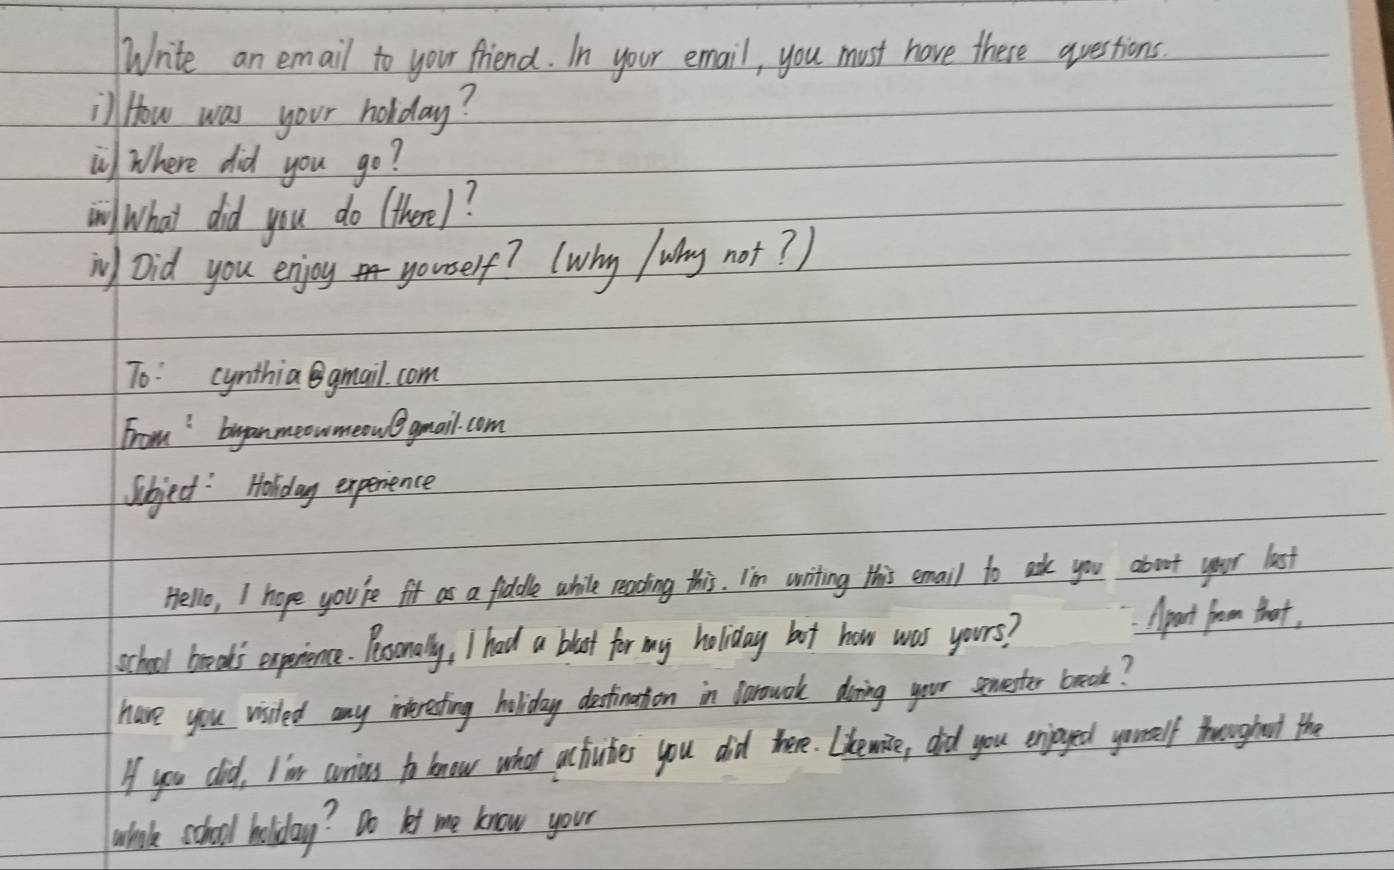 Write an email to your friend. In your email, you must have these questions.
i) How was your holiday?
ii) Where did you go?
iii) What did you do (there)?
iv) Did you enjoy yourself? (why / why not?)
To: cynthia@gmail.com
From: bryanmeowmeow@gmail.com
Subject: Holiday experience
Hello, I hope you're fit as a fiddle while reading this. I'm writing this email to ask you about your last
school break's experience. Personally, I had a blast for my holiday but how was yours? Apart from that,
have you visited any interesting holiday destination in Sarawak during your semester break?
If you did, I'm curious to know what activities you did there. Likewise, did you enjoyed yourself throughout the
whole school holiday? Do let me know your